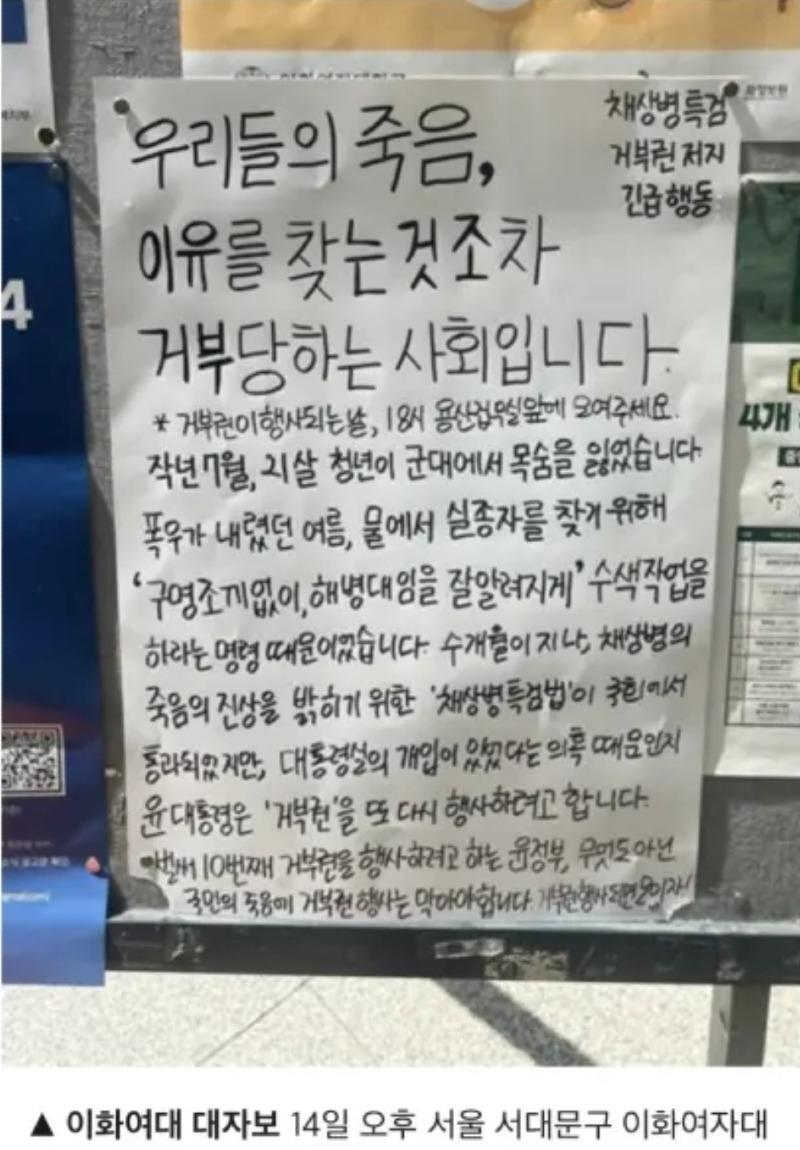 우리들의 죽음,
이유를 찾는 것조차
거부당하는 사회입니다.
채상병 특검
거부권 저지
긴급 행동
* 거부권이 행사되는 날, 18시 용산집무실앞에 모여주세요.
작년 7월, 21살 청년이 군대에서 목숨을 잃었습니다.
폭우가 내렸던 여름, 물에서 실종자를 찾기 위해
'구명조끼없이, 해병대임을 잘알려지게' 수색작업을
하라는 명령 때문이었습니다. 수개월이 지나, 채상병의
죽음의 진상을 밝히기 위한 '채상병특검법'이 국회에서
통과되었지만, 대통령실의 개입이 있었다는 의혹 때문인지
윤 대통령은 '거부권'을 또 다시 행사하려고 합니다.
벌써 10번째 거부권을 행사하려고 하는 윤정부, 무엇도 아닌
국민의 죽음에 거부권 행사는 막아야합니다. 거부권행사되면 모이자!
4
4개
▲ 이화여대 대자보 14일 오후 서울 서대문구 이화여자대